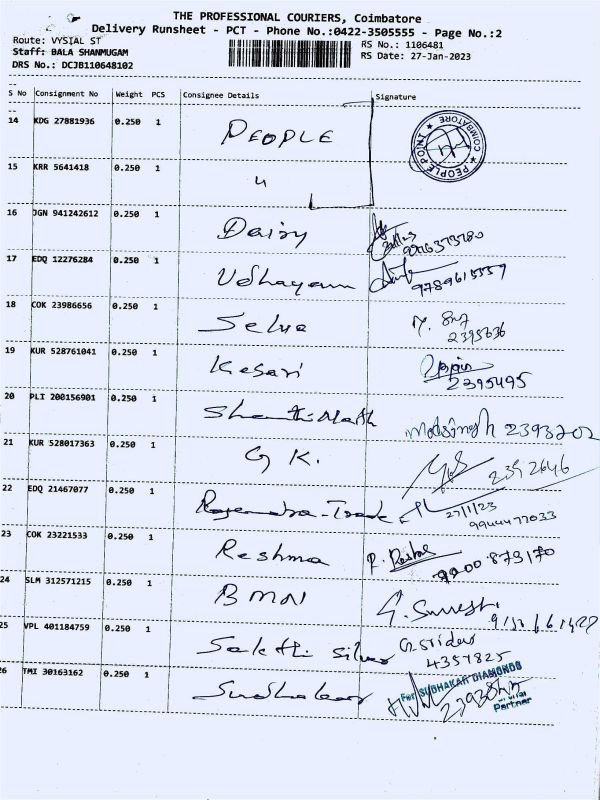 THE PROFESSIONAL COURIERS, Coimbatore
Delivery Runsheet - PCT - Phone No.:0422-3505555 - Page No.:2
Route: VYSIAL ST
RS No.: 1106481
Staff: BALA SHANMUGAM
RS Date: 27-Jan-2023
DRS No.: DCJB110648102
S No Consignment No Weight PCS Consignee Details Signature
14 KDG 27881936 0.250 1 PEOPLE
PEOPLE INFO COIMBATORE
15 KRR 5641418 0.250 1 "
16 JGN 941242612 0.250 1 Daisy
17 EDQ 12276284 0.250 1 Udhayam 9789615559
18 COK 23986656 0.250 1 Selva 2395636
19 KUR 528761041 0.250 1 Kesari 2395495
20 PLI 200156901 0.250 1 Shanthi Nath 2393202
21 KUR 528017363 0.250 1 G K. 2392646
22 EDQ 21467077 0.250 1 Rajendra-Trade 27/1/23
9944477033
23 COK 23221533 0.250 1 Reshma
24 SLM 312571215 0.250 1 BMN G. Suresh
25 VPL 401184759 0.250 1 Sakthi Silver G Sridar
4357825
26 TMI 30163162 0.250 1 Sudhakar For SUDHAKAR DIAMONDS
Partner